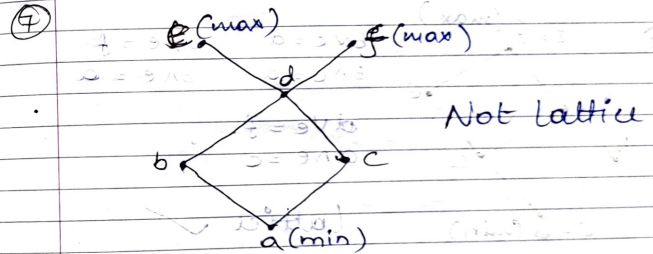 7
e (max) f (max)
d
Not Lattice
b c
a (min)